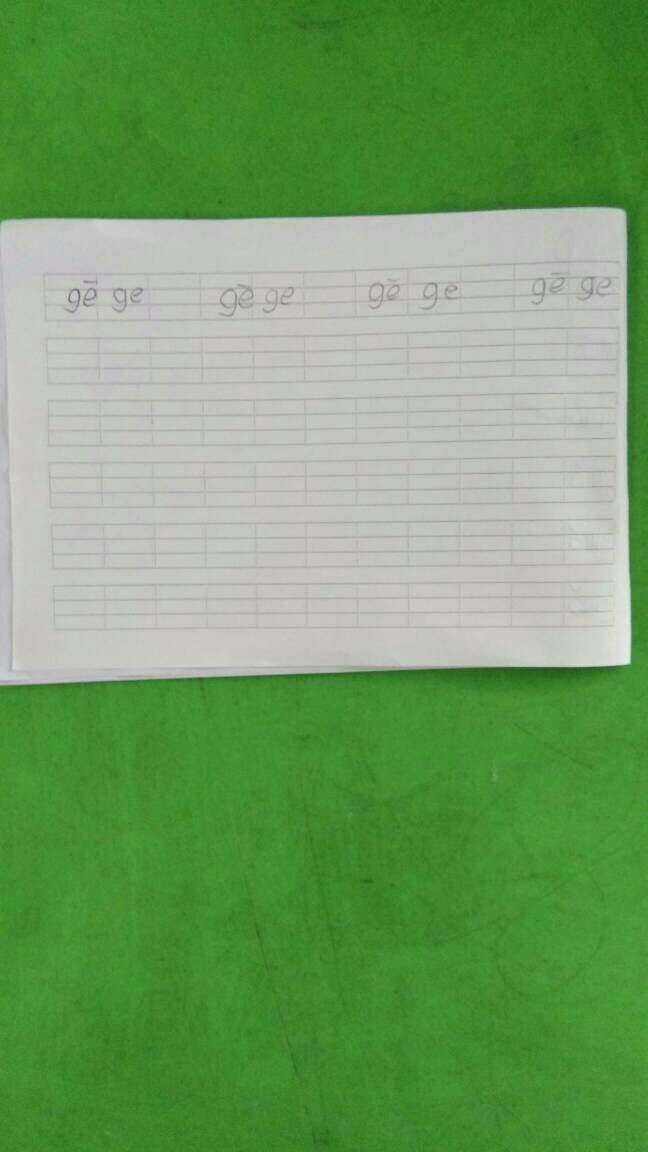 gē ge gē ge gē ge gē ge